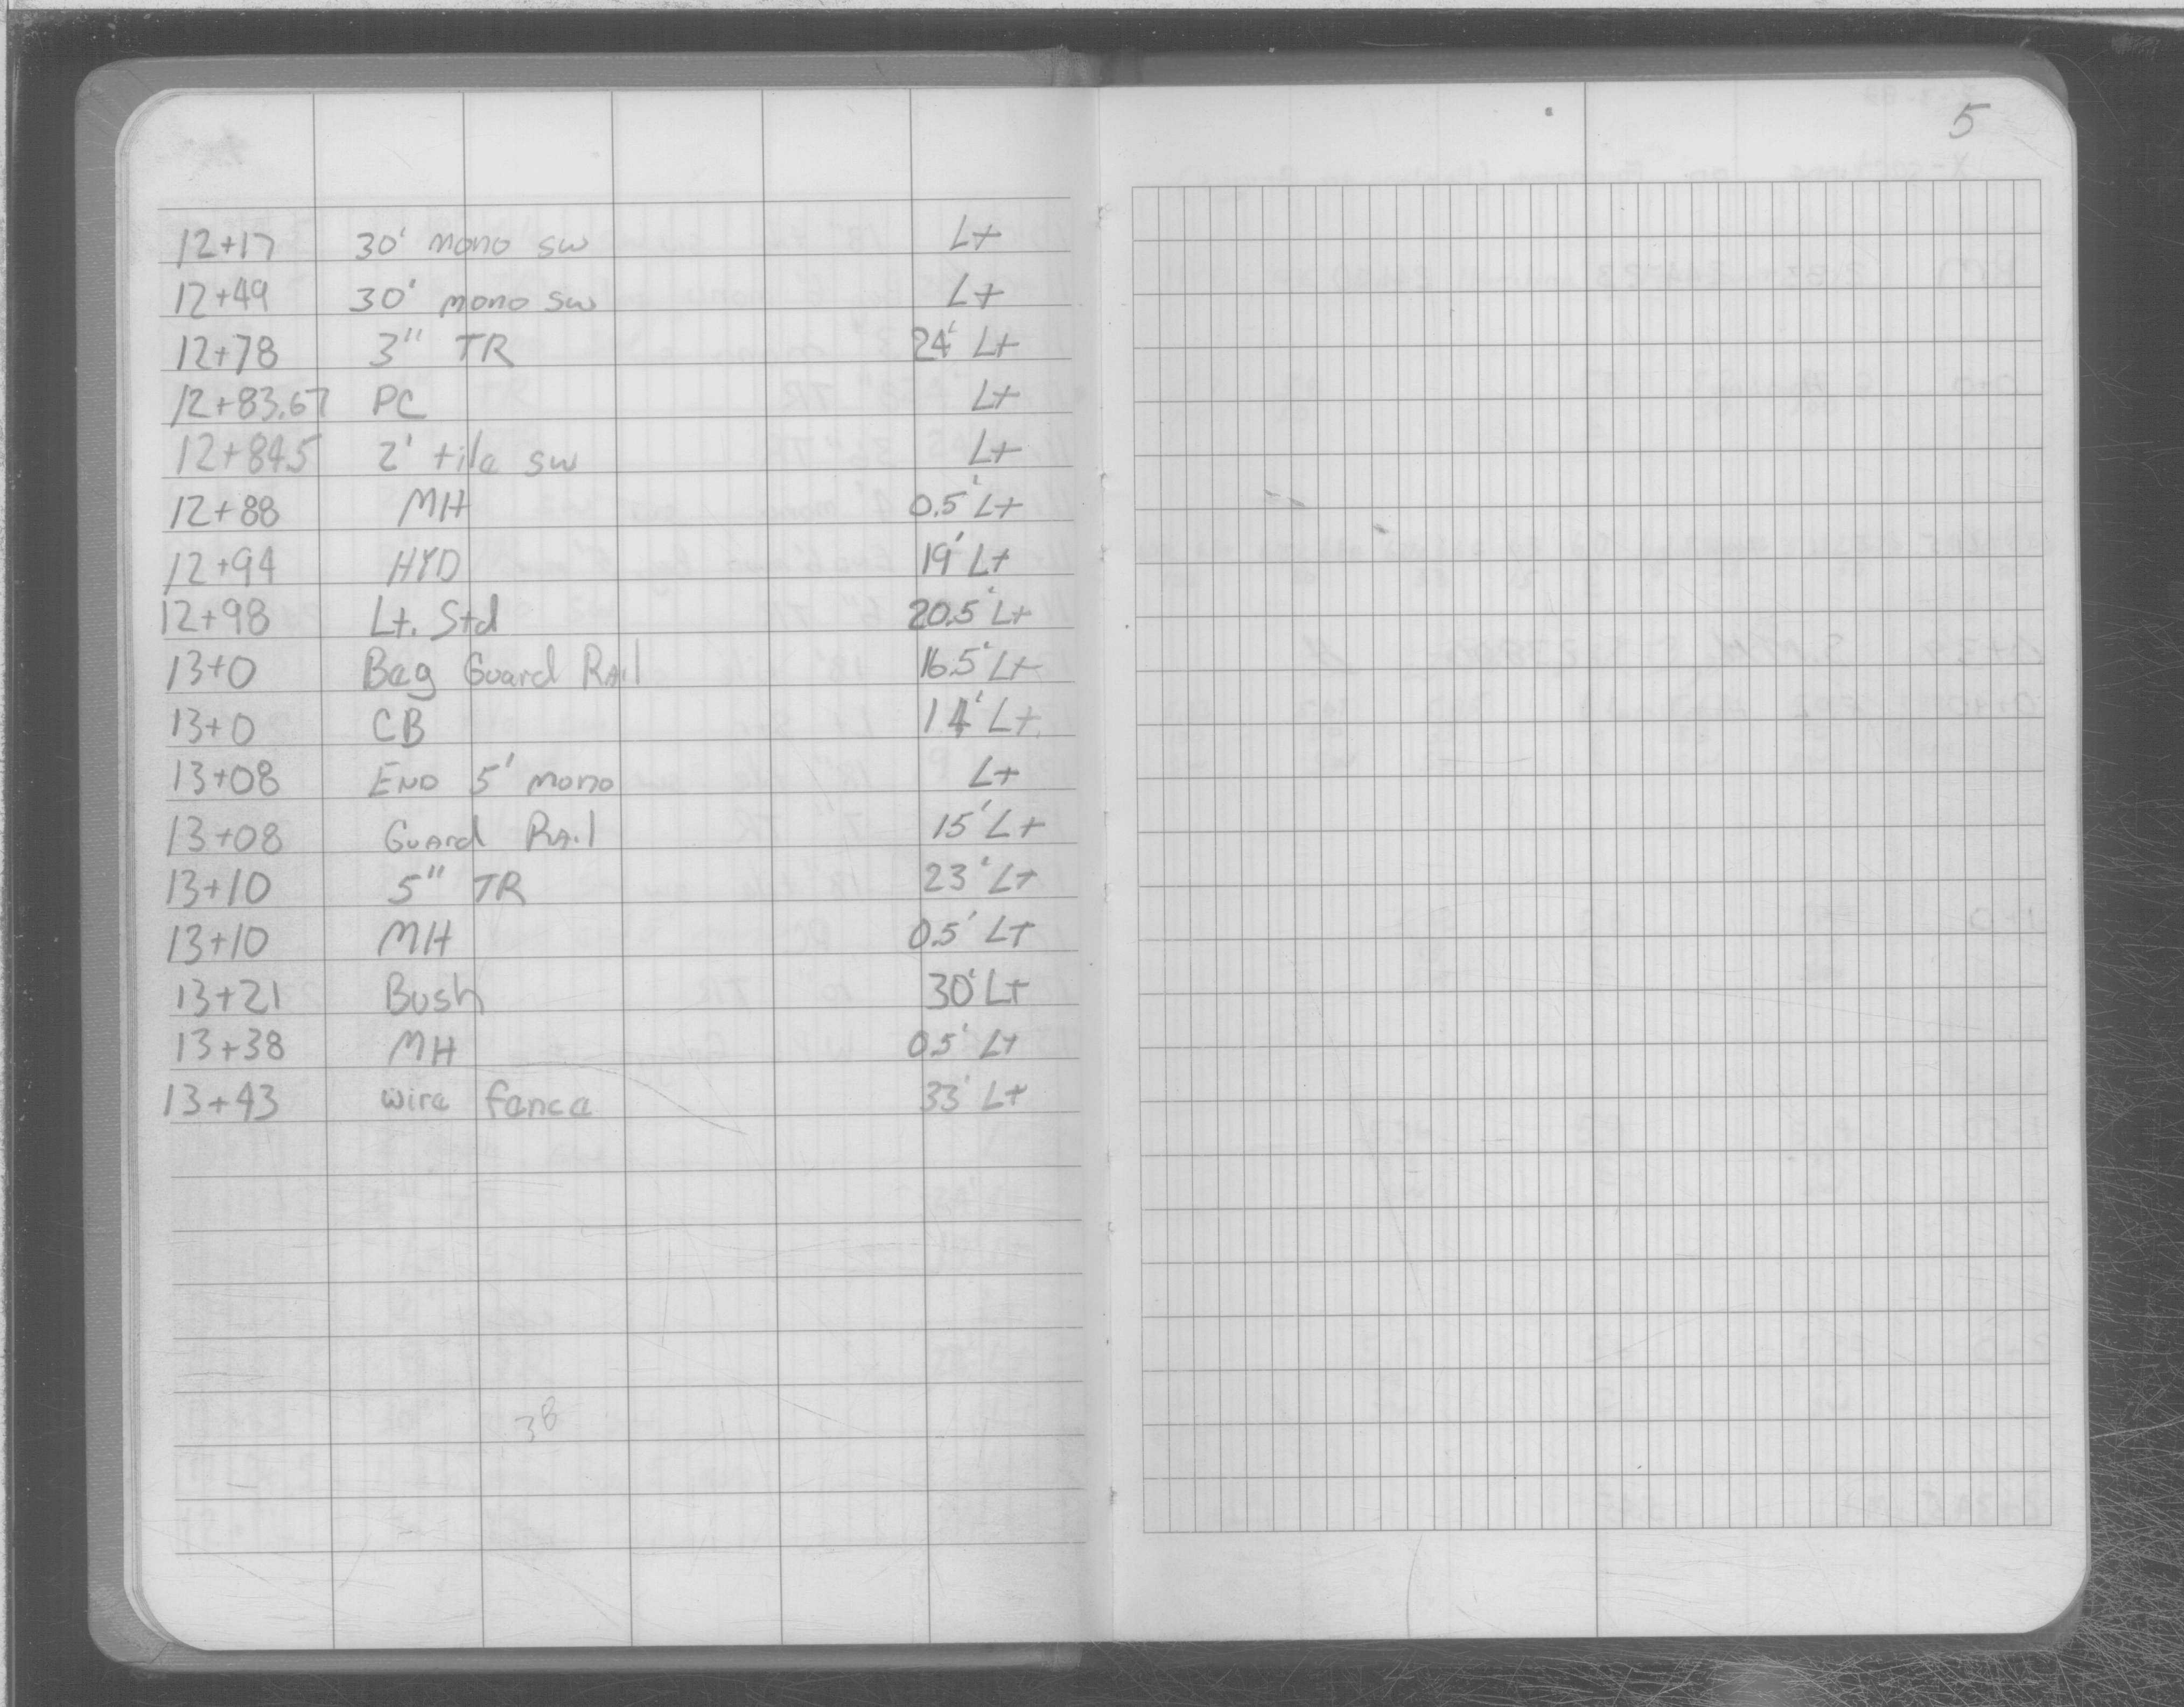 5
12+17 30' mono sw Lt
12+49 30' mono sw Lt
12+78 3" TR 24' Lt
12+83.67 PC Lt
12+84.5 2' tile sw Lt
12+88 MH 0.5' Lt
12+94 HYD 19' Lt
12+98 Lt. Std 20.5' Lt
13+0 Beg Guard Rail 16.5' Lt
13+0 CB 14' Lt
13+08 END 5' mono Lt
13+08 Guard Rail 15' Lt
13+10 5" TR 23' Lt
13+10 MH 0.5' Lt
13+21 Bush 30' Lt
13+38 MH 0.5' Lt
13+43 wire fence 33' Lt
38